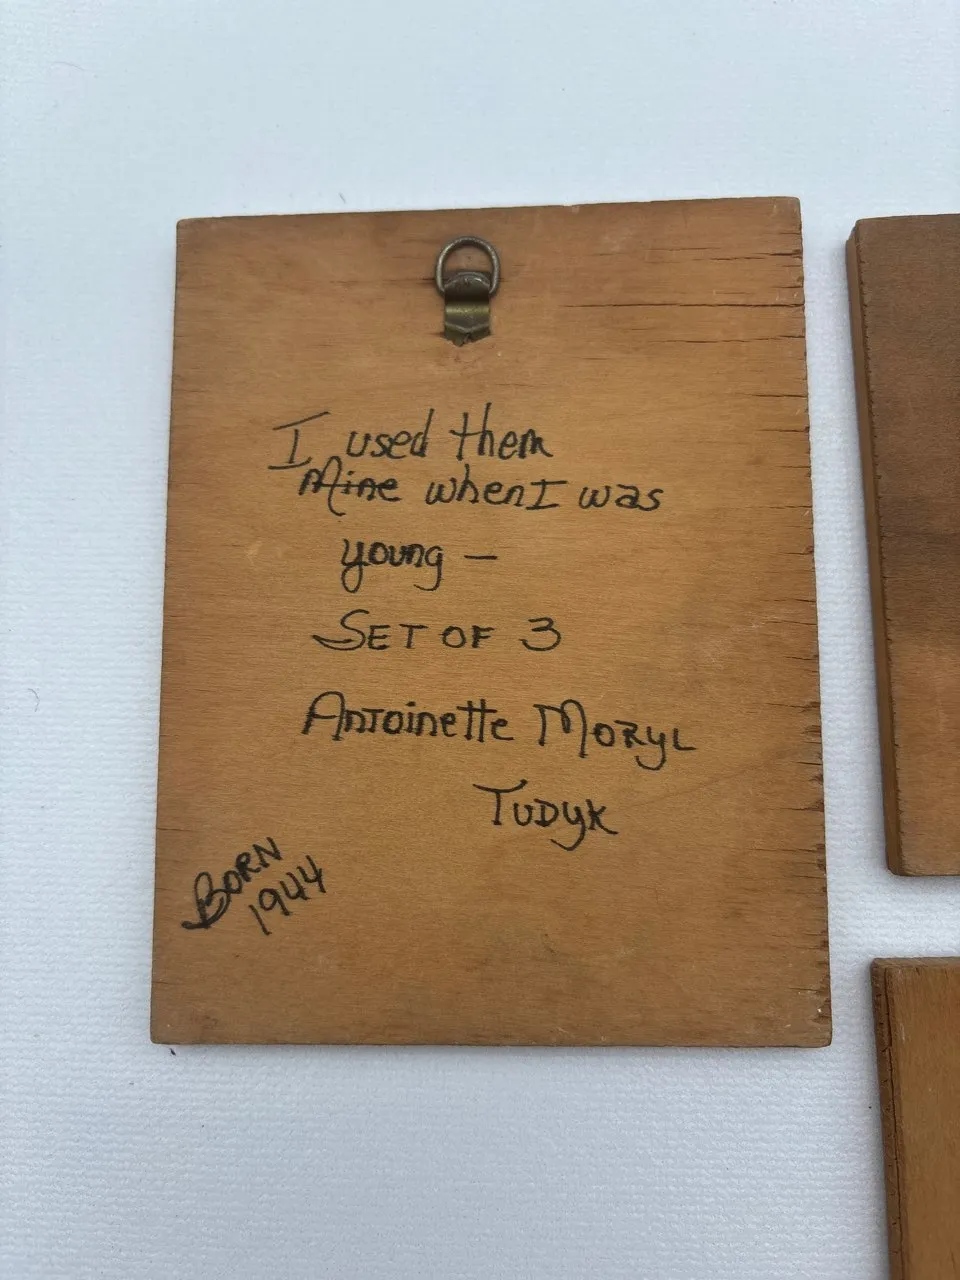 I used them
Mine when I was
young —
SET OF 3
Antoinette Moryl
Tudyk
BORN
1944